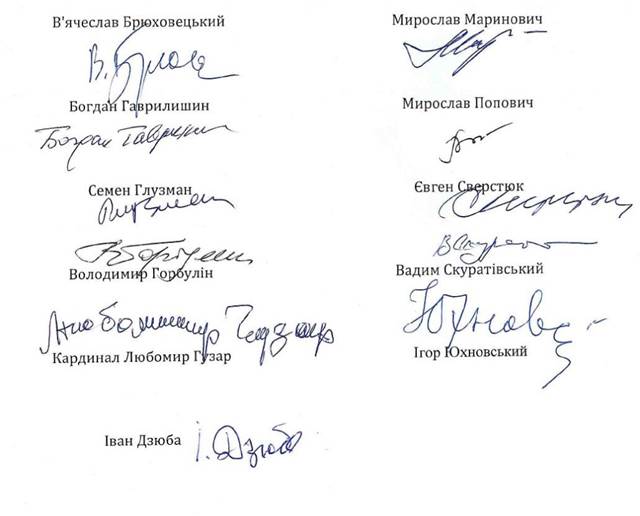 В'ячеслав Брюховецький
Мирослав Маринович
Богдан Гаврилишин
Мирослав Попович
Богдан Гаврилишин
Семен Глузман
Євген Сверстюк
Володимир Горбулін
Вадим Скуратівський
Любомир Гузар
Кардинал Любомир Гузар
Ігор Юхновський
Іван Дзюба
І. Дзюба